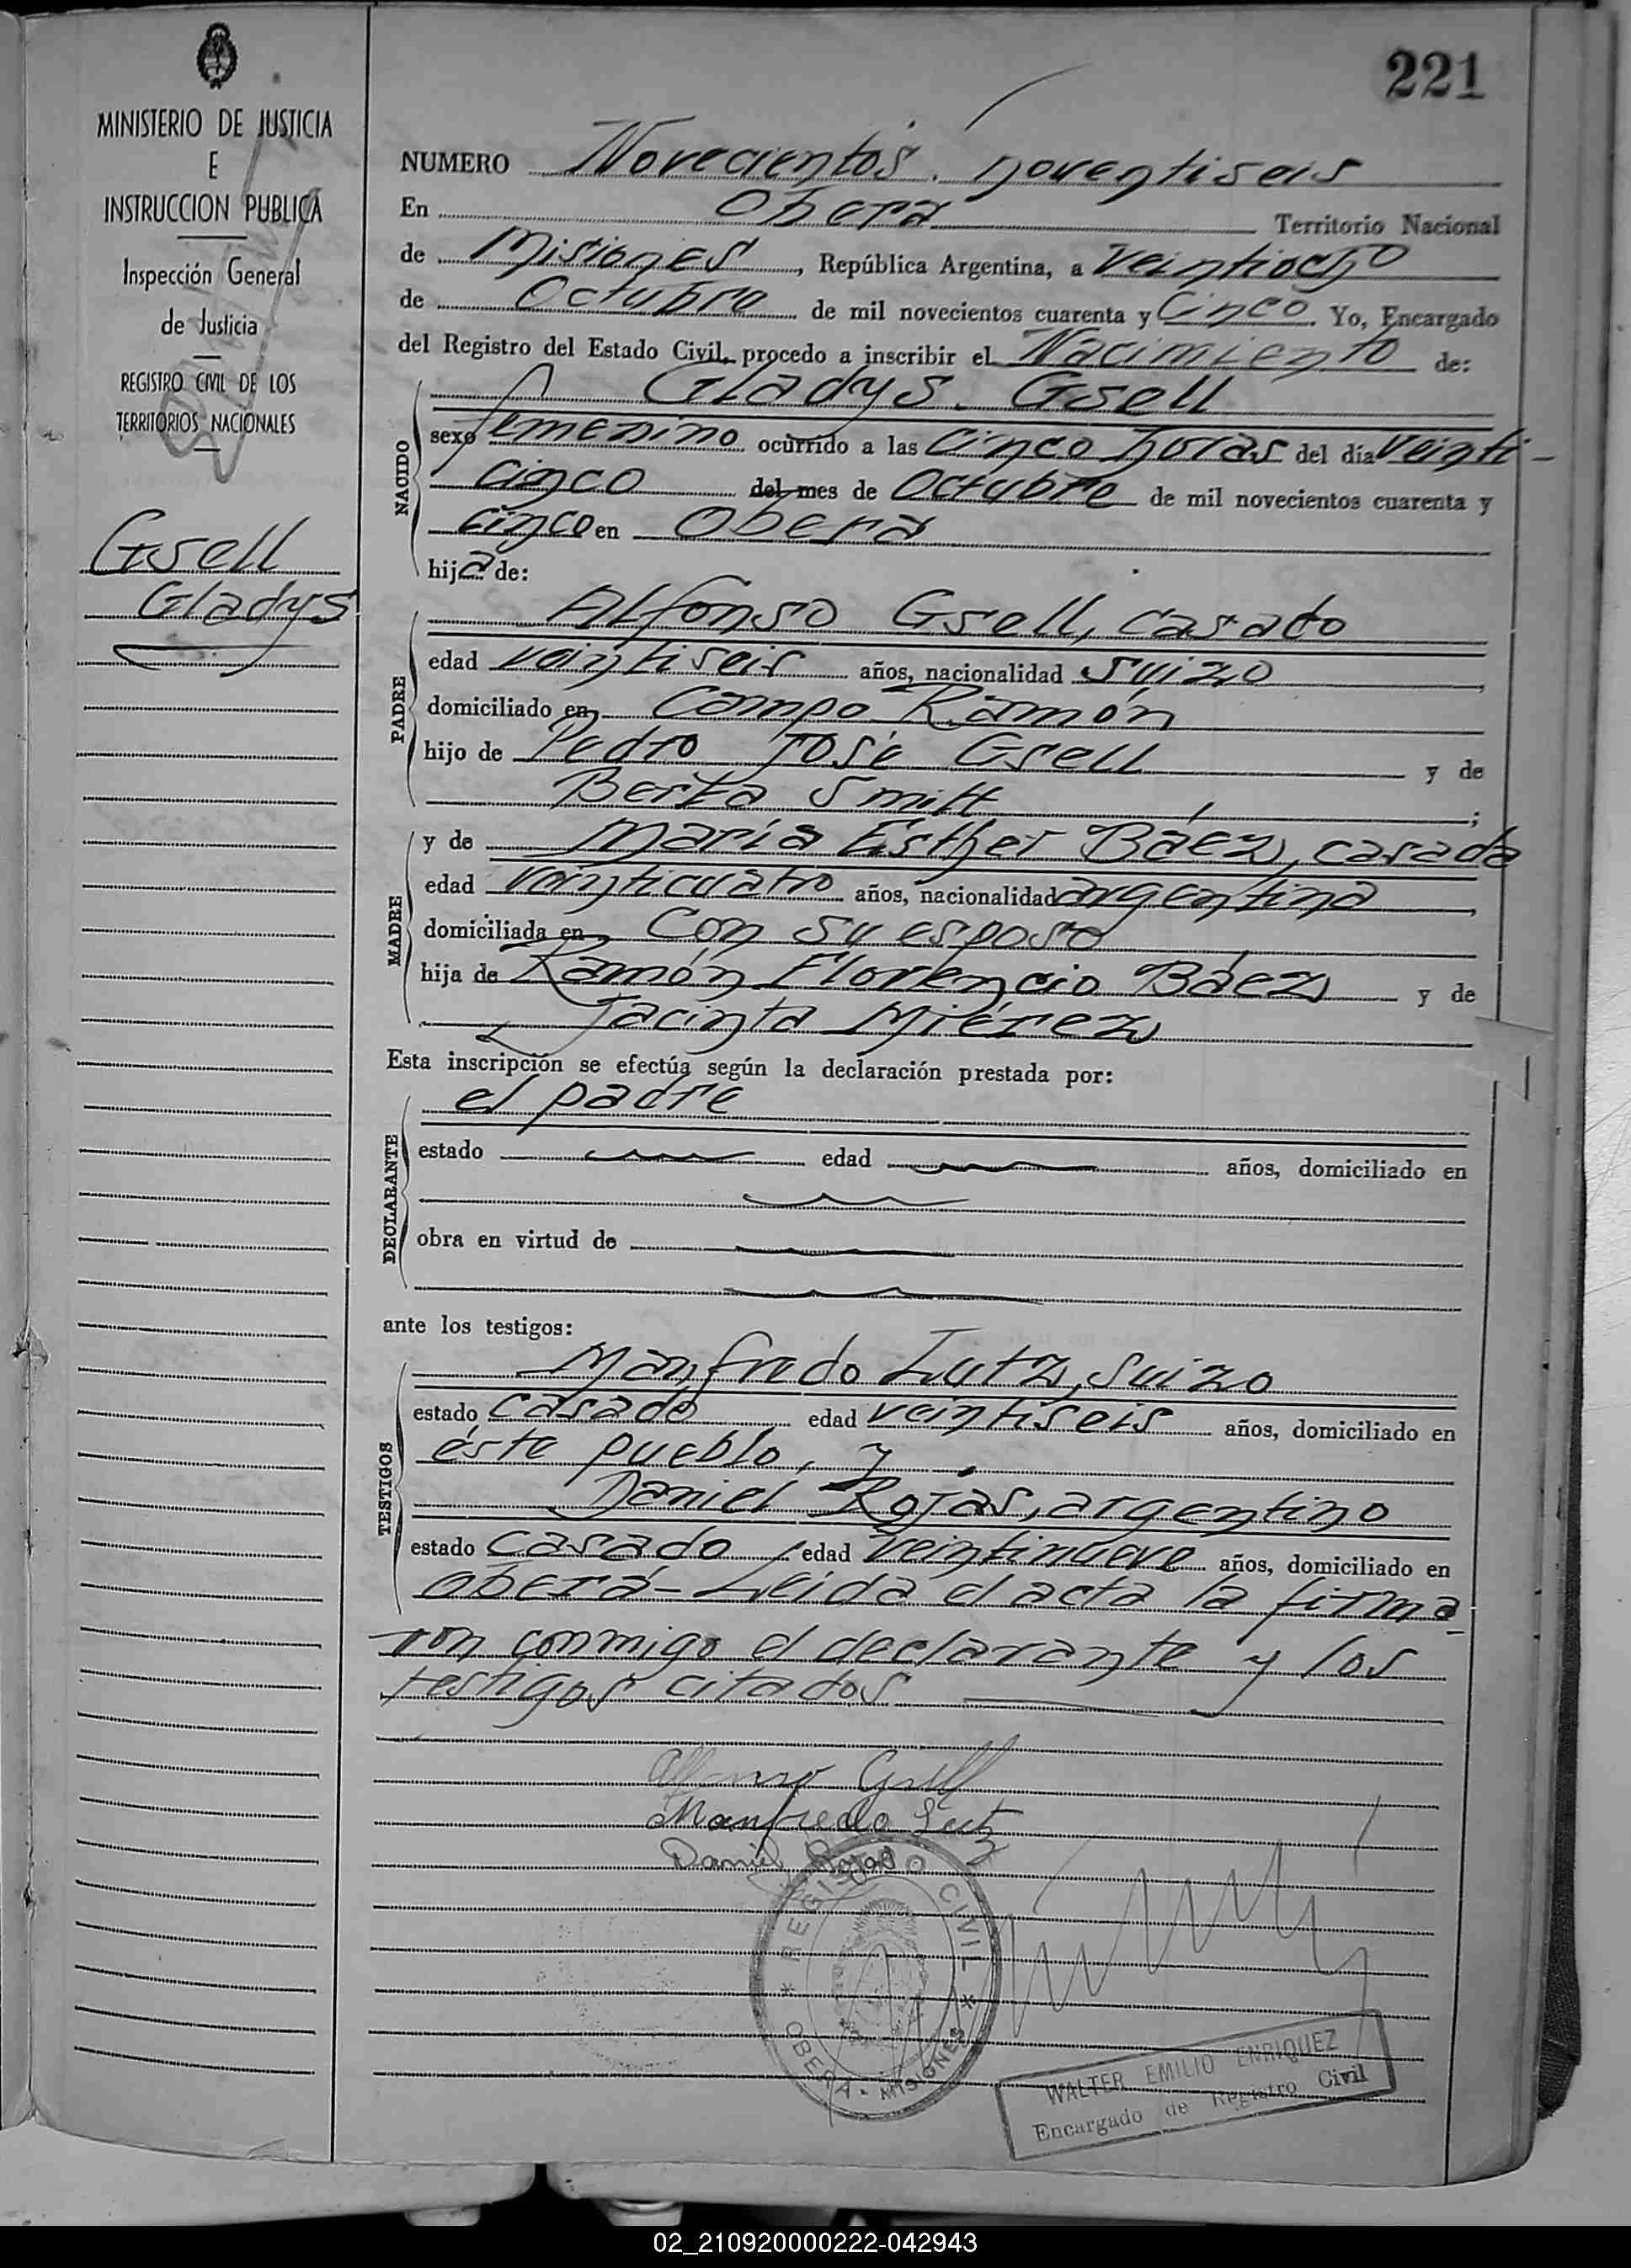 221
MINISTERIO DE JUSTICIA
E
INSTRUCCION PUBLICA
Inspección General
de Justicia
REGISTRO CIVIL DE LOS
TERRITORIOS NACIONALES
Gsell
Gladys
NUMERO Novecientos noventiseis
En Obera Territorio Nacional
de Misiones, República Argentina, a veintiocho
de Octubre de mil novecientos cuarenta y Cinco. Yo, Encargado
del Registro del Estado Civil, procedo a inscribir el Nacimiento de:
NACIDO
Gladys Gsell
sexo femenino ocurrido a las cinco horas del día veinti-
cinco del mes de Octubre de mil novecientos cuarenta y
cinco en Oberá
hija de:
PADRE
Alfonso Gsell, casado
edad veintiseis años, nacionalidad suizo
domiciliado en Campo Ramón
hijo de Pedro José Gsell y de
Berta Smitt;
MADRE
y de María Esther Báez, casada
edad veinticuatro años, nacionalidad argentina,
domiciliada en Con su esposo
hija de Ramón Florencio Báez y de
Jacinta Miérez
Esta inscripción se efectúa según la declaración prestada por:
DECLARANTE
el padre
estado edad años, domiciliado en
obra en virtud de
ante los testigos:
TESTIGOS
Manfredo Lutz, suizo
estado casado edad veintiseis años, domiciliado en
éste pueblo, y
Daniel Rojas, argentino
estado casado, edad veintinueve años, domiciliado en
oberá- Leida el acta la firma
ron conmigo el declarante y los
testigos citados
Alfonso Gsell
Manfredo Lutz
Daniel Rojas
* REGISTRO CIVIL *
OBERA - MISIONES
WALTER EMILIO ENRIQUEZ
Encargado de Registro Civil
02_210920000222-042943